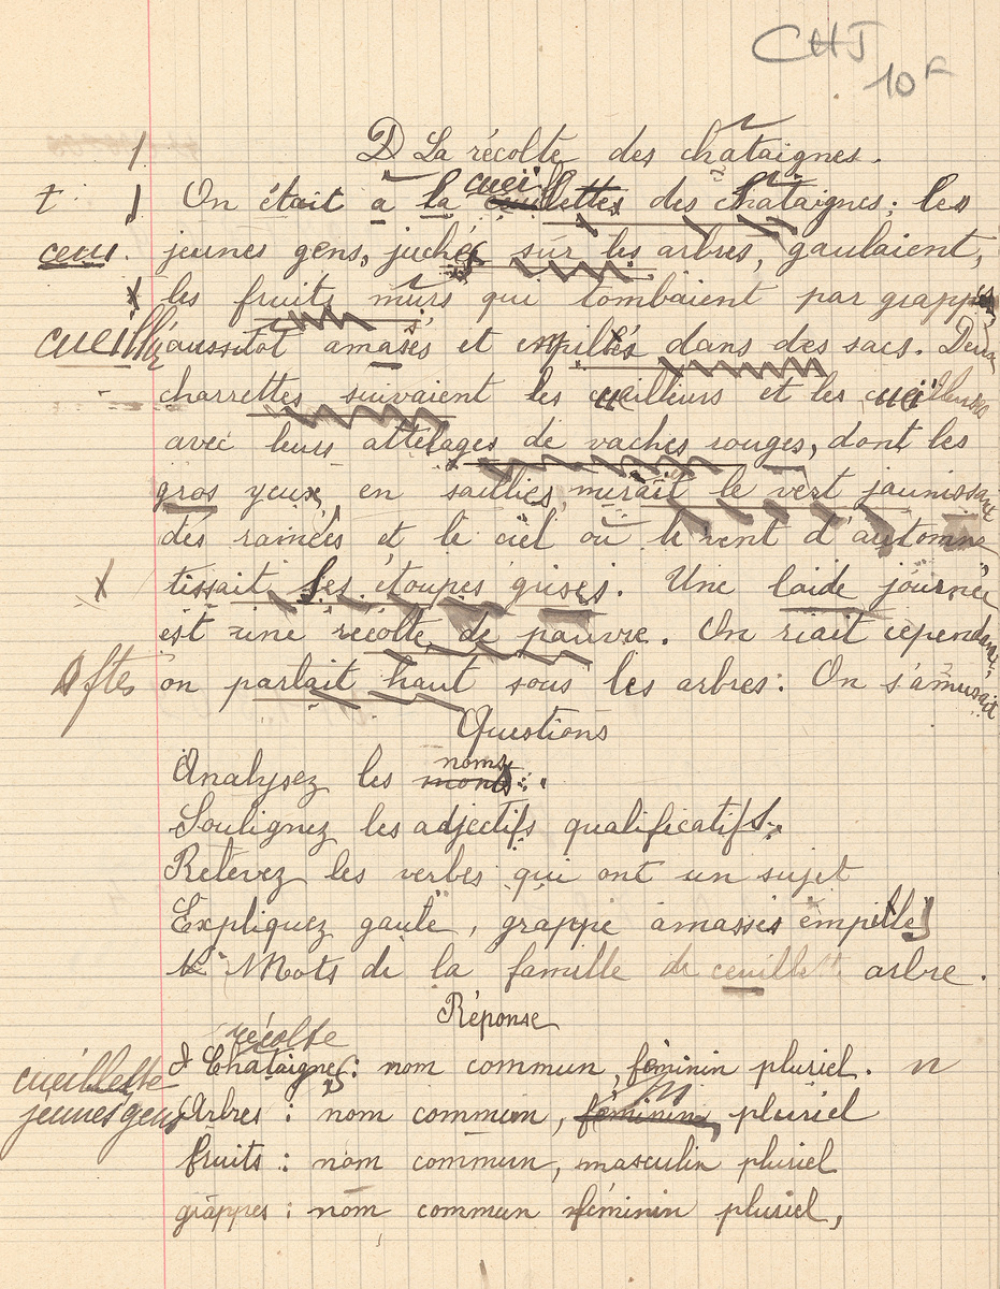 CHJ
10F
D La récolte des chataignes.
t. On était a la cueillettes des chataignes; les
ceu. jeunes gens, juchés sur les arbres, gaulaient,
les fruits mûrs qui tombaient par grappes,
cueill aussitôt amasés et empilés dans des sacs. Deux
charrettes suivaient les cueilleurs et les cueilleuses
avec leurs attelages de vaches rouges, dont les
gros yeux, en saillies, mirait le vert jaunissant
des ramées et le ciel où le vent d'automne
tissait, ses étoupes grises. Une laide journée
est une récolte de pauvre. On riait cependant,
on parlait haut sous les arbres: On s'amusait
Questions
Analysez les monts noms:
Soulignez les adjectifs qualificatifs.
Relevez les verbes qui ont un sujet
Expliquez gaule, grappe amassés empilles
Mots de la famille de ceuillett arbre.
Réponse
récolte
Chataignes: nom commun, féminin pluriel. n
cueillette
jeunes gens Arbres: nom commun, féminin m pluriel
fruits: nom commun, masculin pluriel
grappes: nom commun féminin pluriel,